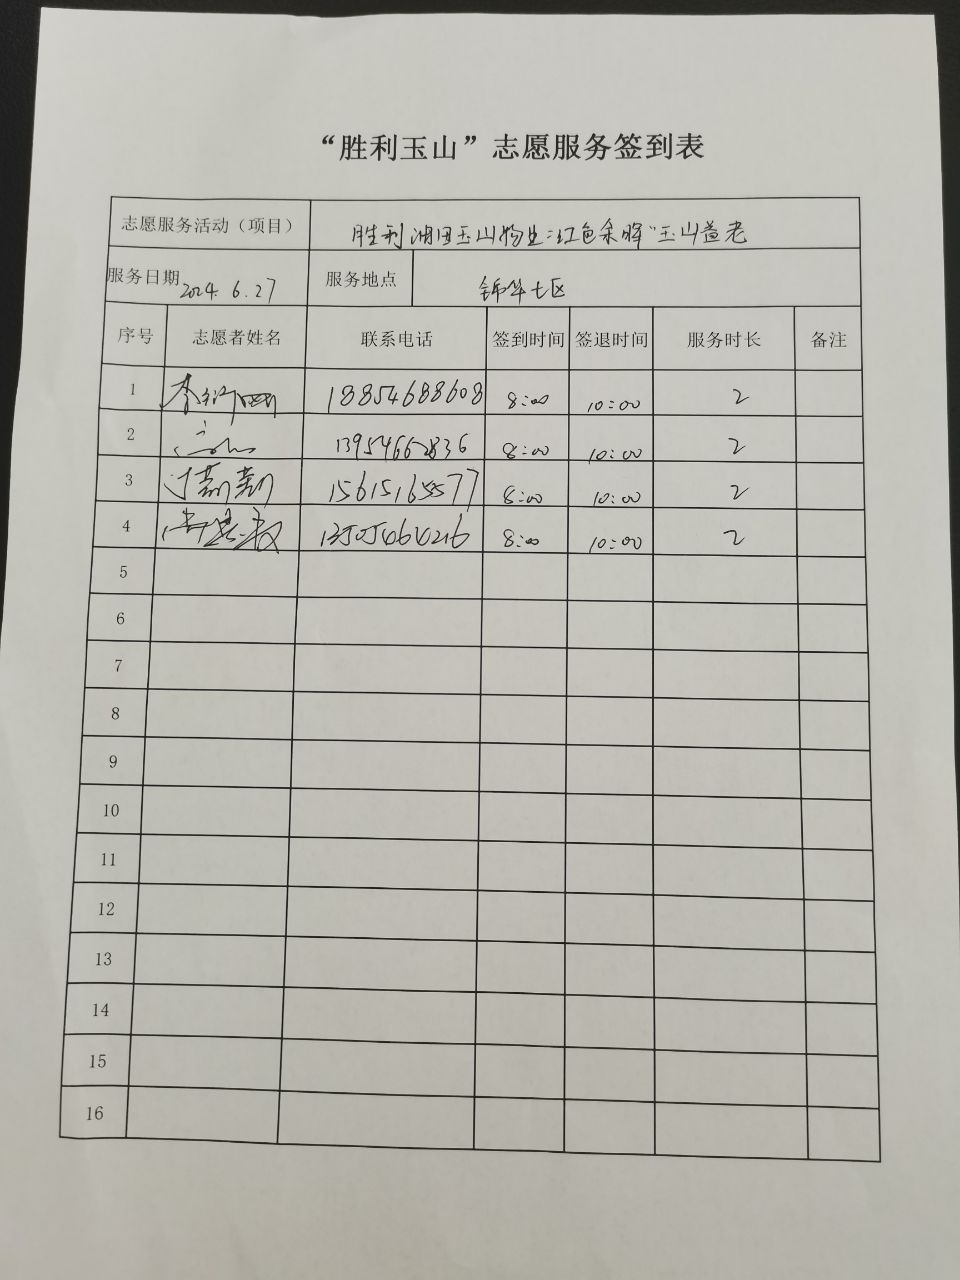 “胜利玉山”志愿服务签到表
志愿服务活动（项目） 胜利油田玉山物业:红色余晖“玉山益老
服务日期 2024.6.27 服务地点 锦华七区
序号 志愿者姓名 联系电话 签到时间 签退时间 服务时长 备注
1 18854688608 8:00 10:00 2
2 13954662836 8:00 10:00 2
3 8:00 10:00 2
4 8:00 10:00 2
5
6
7
8
9
10
11
12
13
14
15
16